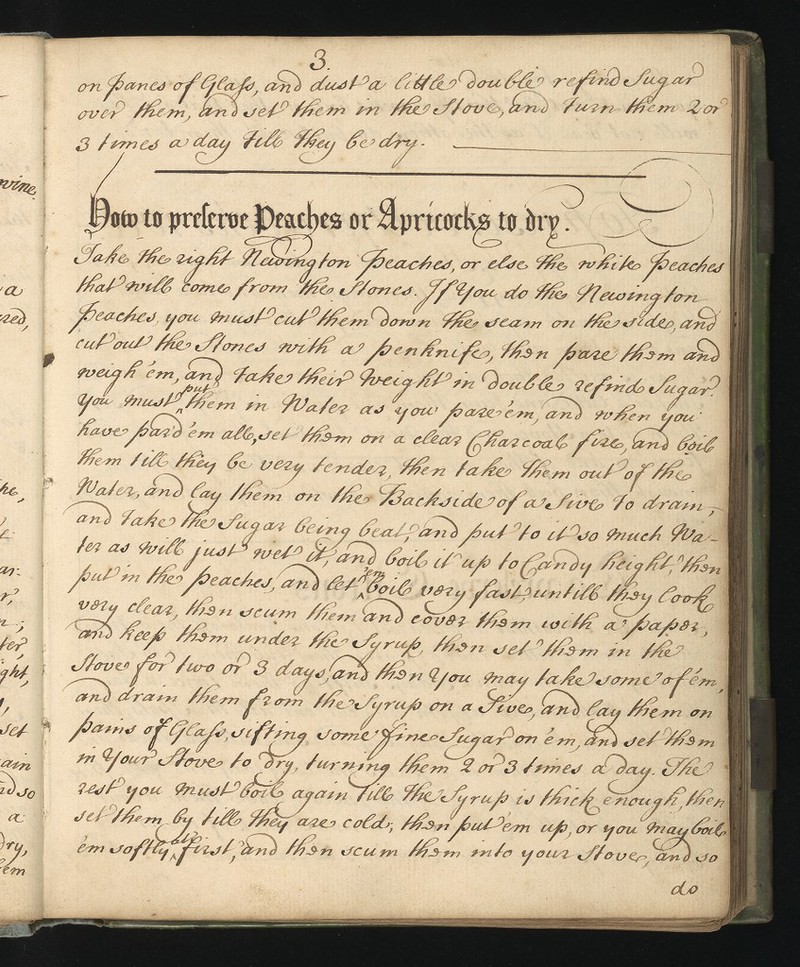 wine.
a
ared,
he,
t
ar:
r,
n;
ter,
ight,
set
ain
nd so
a
dry,
em
3.
on panes of Glass, and dust a little double refind Sugar
over them, and set them in the Stove, and turn them 2 or
3 times a day till they be dry.
How to preserve Peaches or Apricocks to dry.
Take the right Newington Peaches, or else the white Peaches
that will come from the Stones. If You do the Newington
Peaches, you must cut them down the seam on the side, and
cut out the Stones with a penknife, then pare them and
weigh 'em, and take their Weight in double refind Sugar.
You must put them in Water as you pare 'em, and when you
have par'd 'em all, set them on a clear Charcoal fire, and boil
them till they be very tender, then take them out of the
Water, and lay them on the Backside of a Sive to drain,
and take the Sugar being beat, and put to it so much Wa-
ter as will just wet it, and boil it up to Candy height, then
put in the peaches, and let 'em boil very fast, untill they look
very clear, then scum them and cover them with a paper,
and keep them under the Syrup, then set them in the
Stove for two or 3 days, and then You may take some of 'em,
and drain them from the Syrup on a Sive, and lay them on
pains of Glass, sifting some fine Sugar on 'em, and set them
in Your Stove to dry, turning them 2 or 3 times a day. The
rest you must boil again till the Syrup is thick enough, then
set them by till they are cold, then put 'em up, or you may boil
'em softly at first, and then scum them into your Stove, and so
do